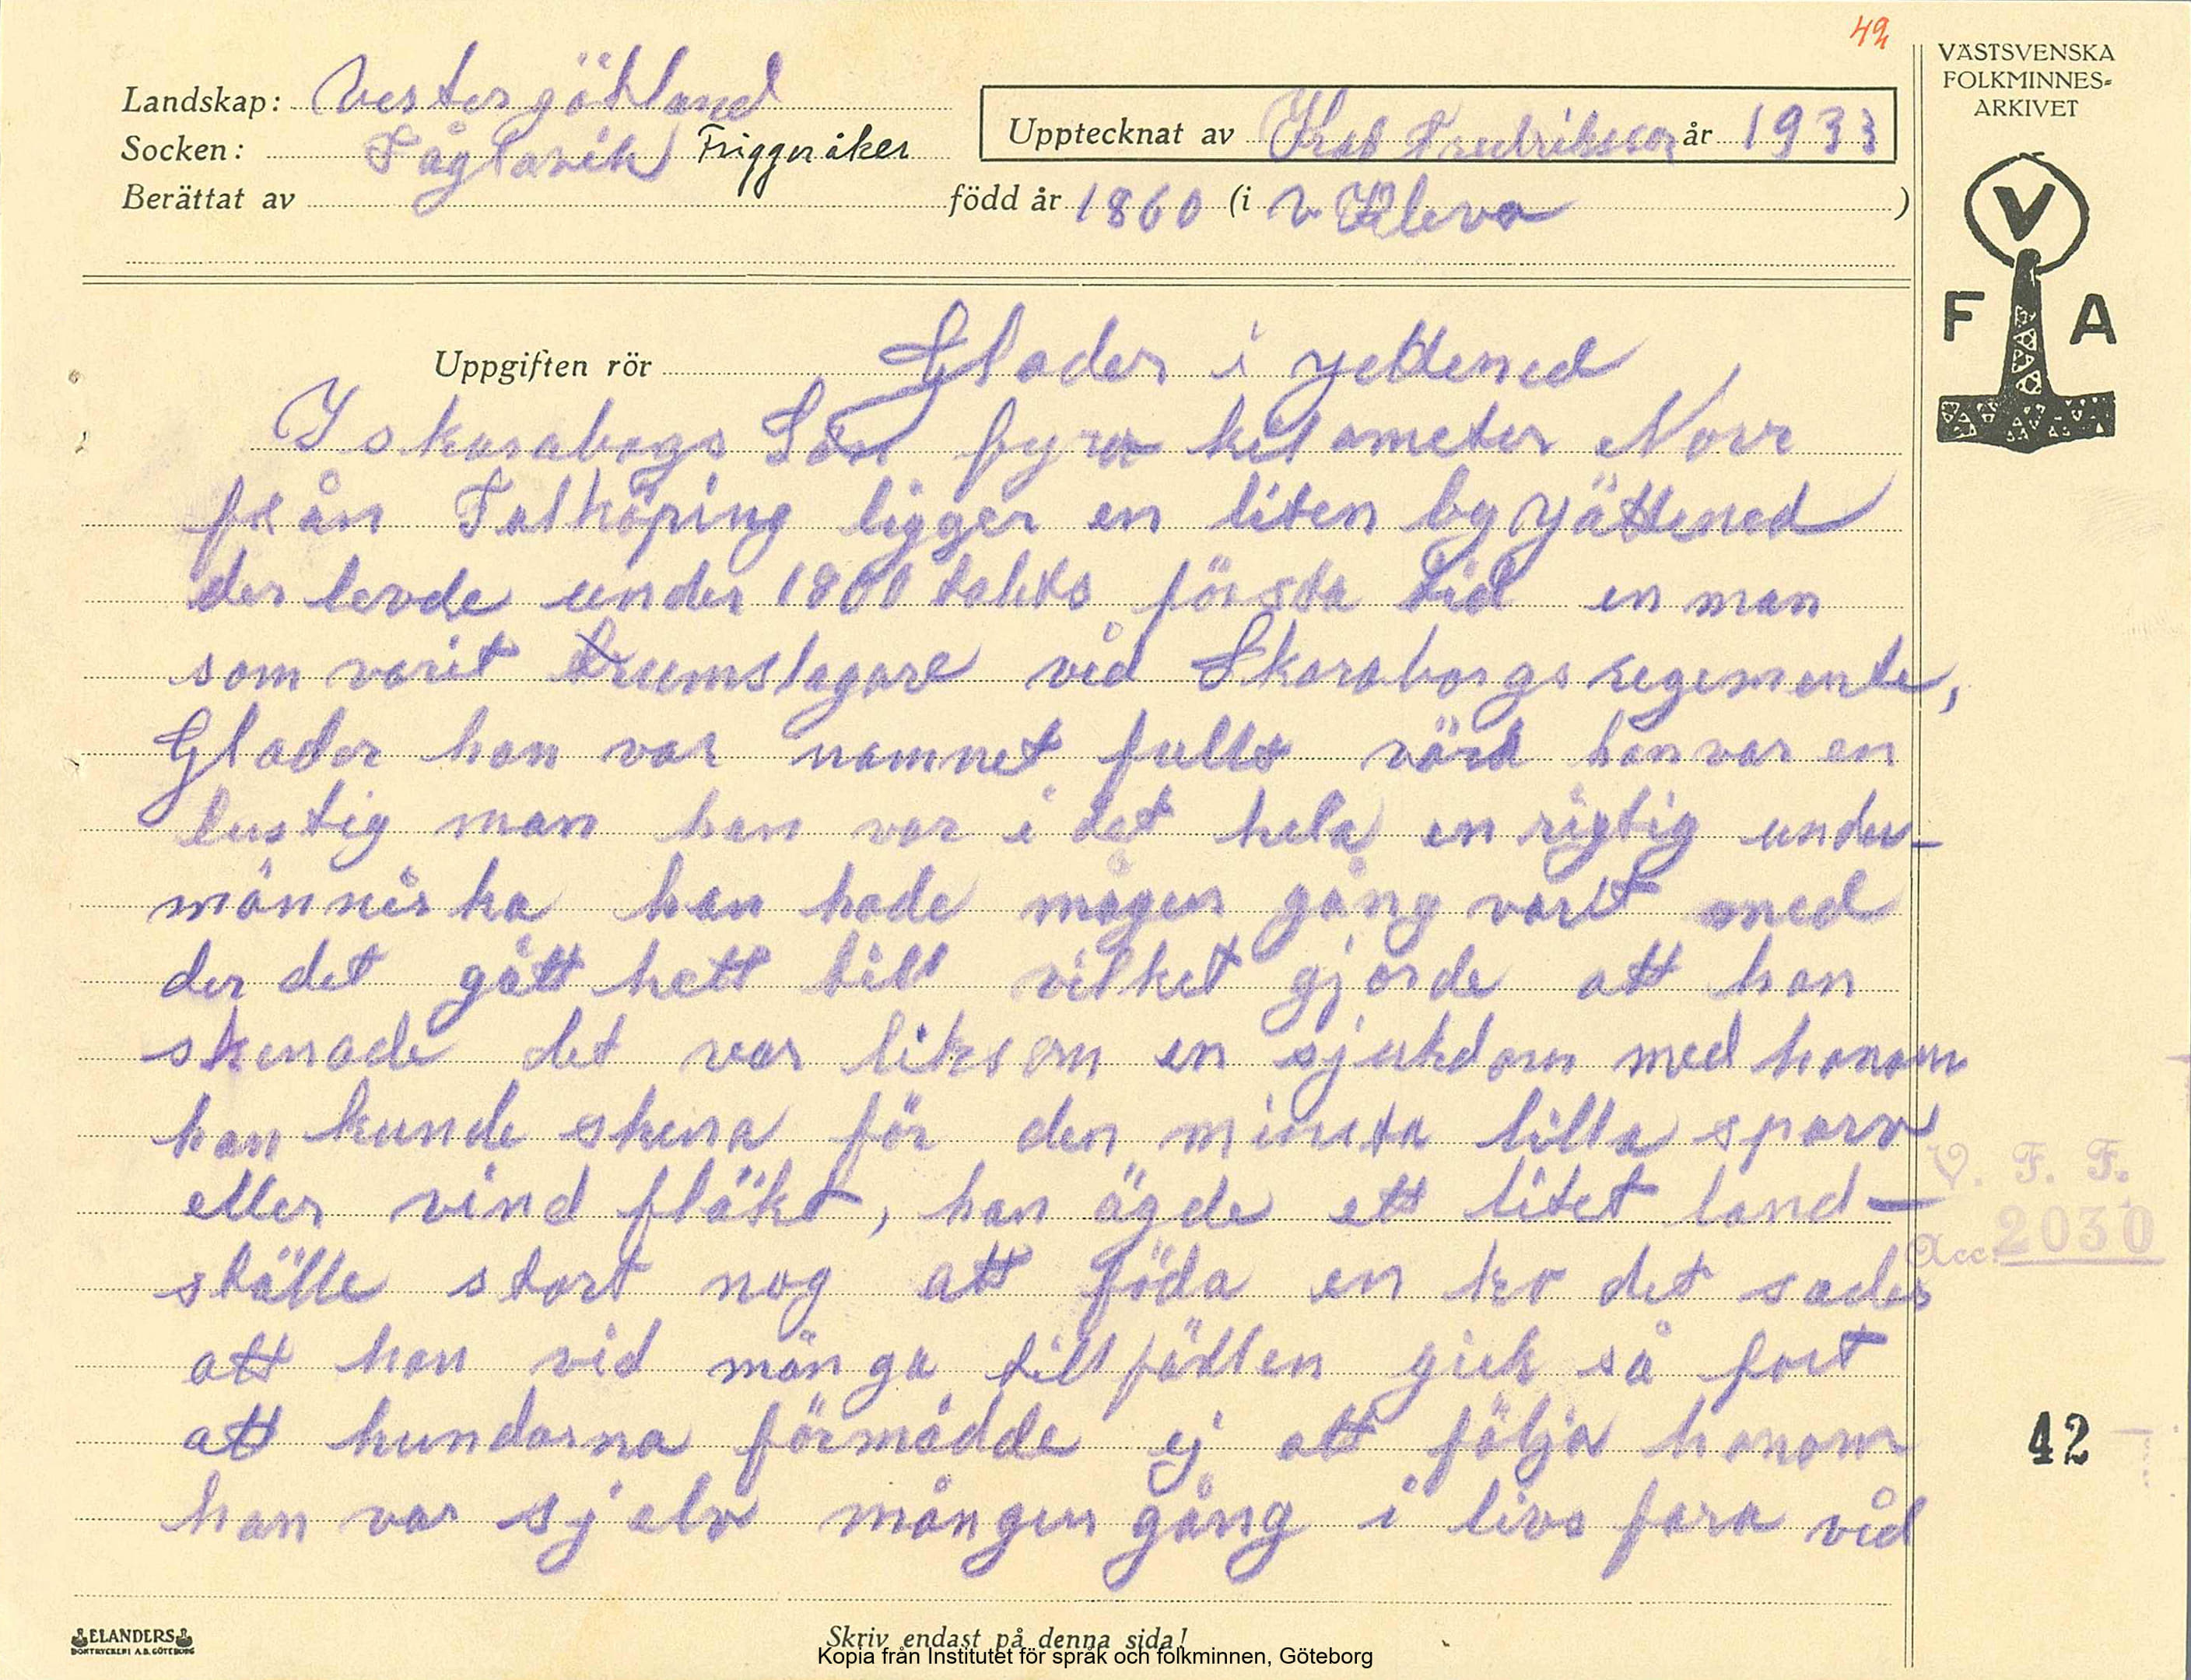 42
VÄSTSVENSKA
FOLKMINNES-
ARKIVET
Landskap: Vestergöthland
Socken: Fåglavik Friggeråker
Upptecknat av Fredriksson år 1933
Berättat av född år 1860 (i V. Kleva)
V
F A
Uppgiften rör Glader i yettened
I skaraborgs Län fyra kilometer Norr
från Falköping ligger en liten by Yättened
der levde under 1800 talets första tid en man
som varit trumslagare vid Skaraborgs regemente,
Glader han var namnet fullt värd han var en
lustig man han var i det hela en rigtig under-
människa han hade mågen gång varit med
der det gått hett till vilket gjorde att han
skenade det var liksom en sjukdom med honom
han kunde skena för den minsta lilla sparv
eller vind fläkt, han ägde ett litet land-
ställe stort nog att föda en ko det sades
att han vid många tillfällen gick så fort
att hundarna förmådde ej att följa honom
han var sjelv mången gång i livs fara vid
V. F. F.
Acc. 2030
42
ELANDERS
BOKTRYCKERI A.B. GÖTEBORG
Skriv endast på denna sida!
Kopia från Institutet för språk och folkminnen, Göteborg